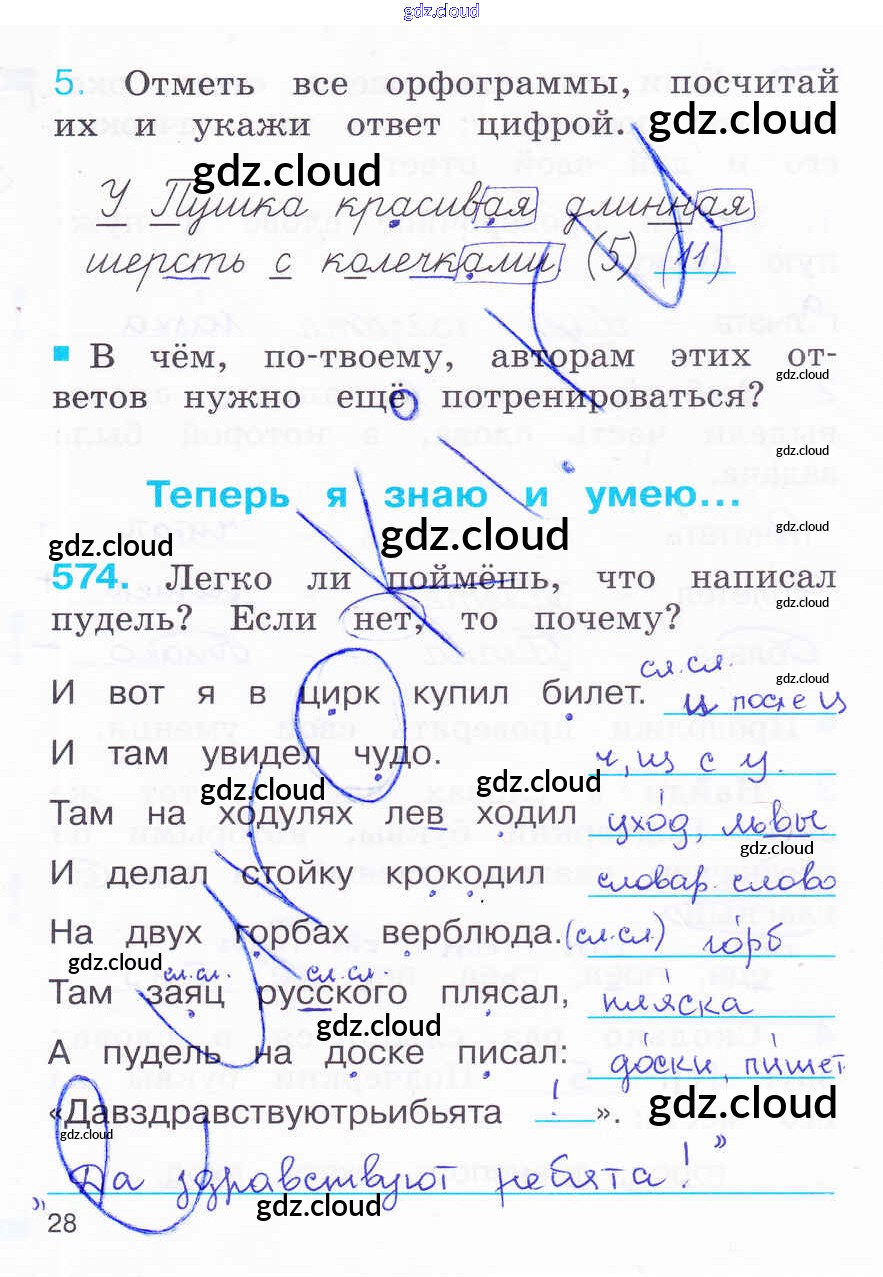 gdz.cloud
5. Отметь все орфограммы, посчитай
их и укажи ответ цифрой. gdz.cloud
gdz.cloud
У Пушка красивая длинная
шерсть с колечками. (5) (11)
В чём, по-твоему, авторам этих от-
gdz.cloud
ветов нужно ещё потренироваться?
gdz.cloud
Теперь я знаю и умею...
gdz.cloud
gdz.cloud gdz.cloud
574. Легко ли поймёшь, что написал
gdz.cloud
пудель? Если нет, то почему?
сл.сл. gdz.cloud
И вот я в цирк купил билет. и после ц
И там увидел чудо. ч, из с у.
gdz.cloud gdz.cloud
Там на ходулях лев ходил уход, львы
gdz.cloud
И делал стойку крокодил словар. слово
На двух горбах верблюда. (сл.сл) горб
gdz.cloud сл.сл. сл.сл.
Там заяц русского плясал, пляска
gdz.cloud
А пудель на доске писал: доски, пишет
«Давздравствуютрьибьята ! ». gdz.cloud
gdz.cloud
„Да здравствуют ребята!”
gdz.cloud
28